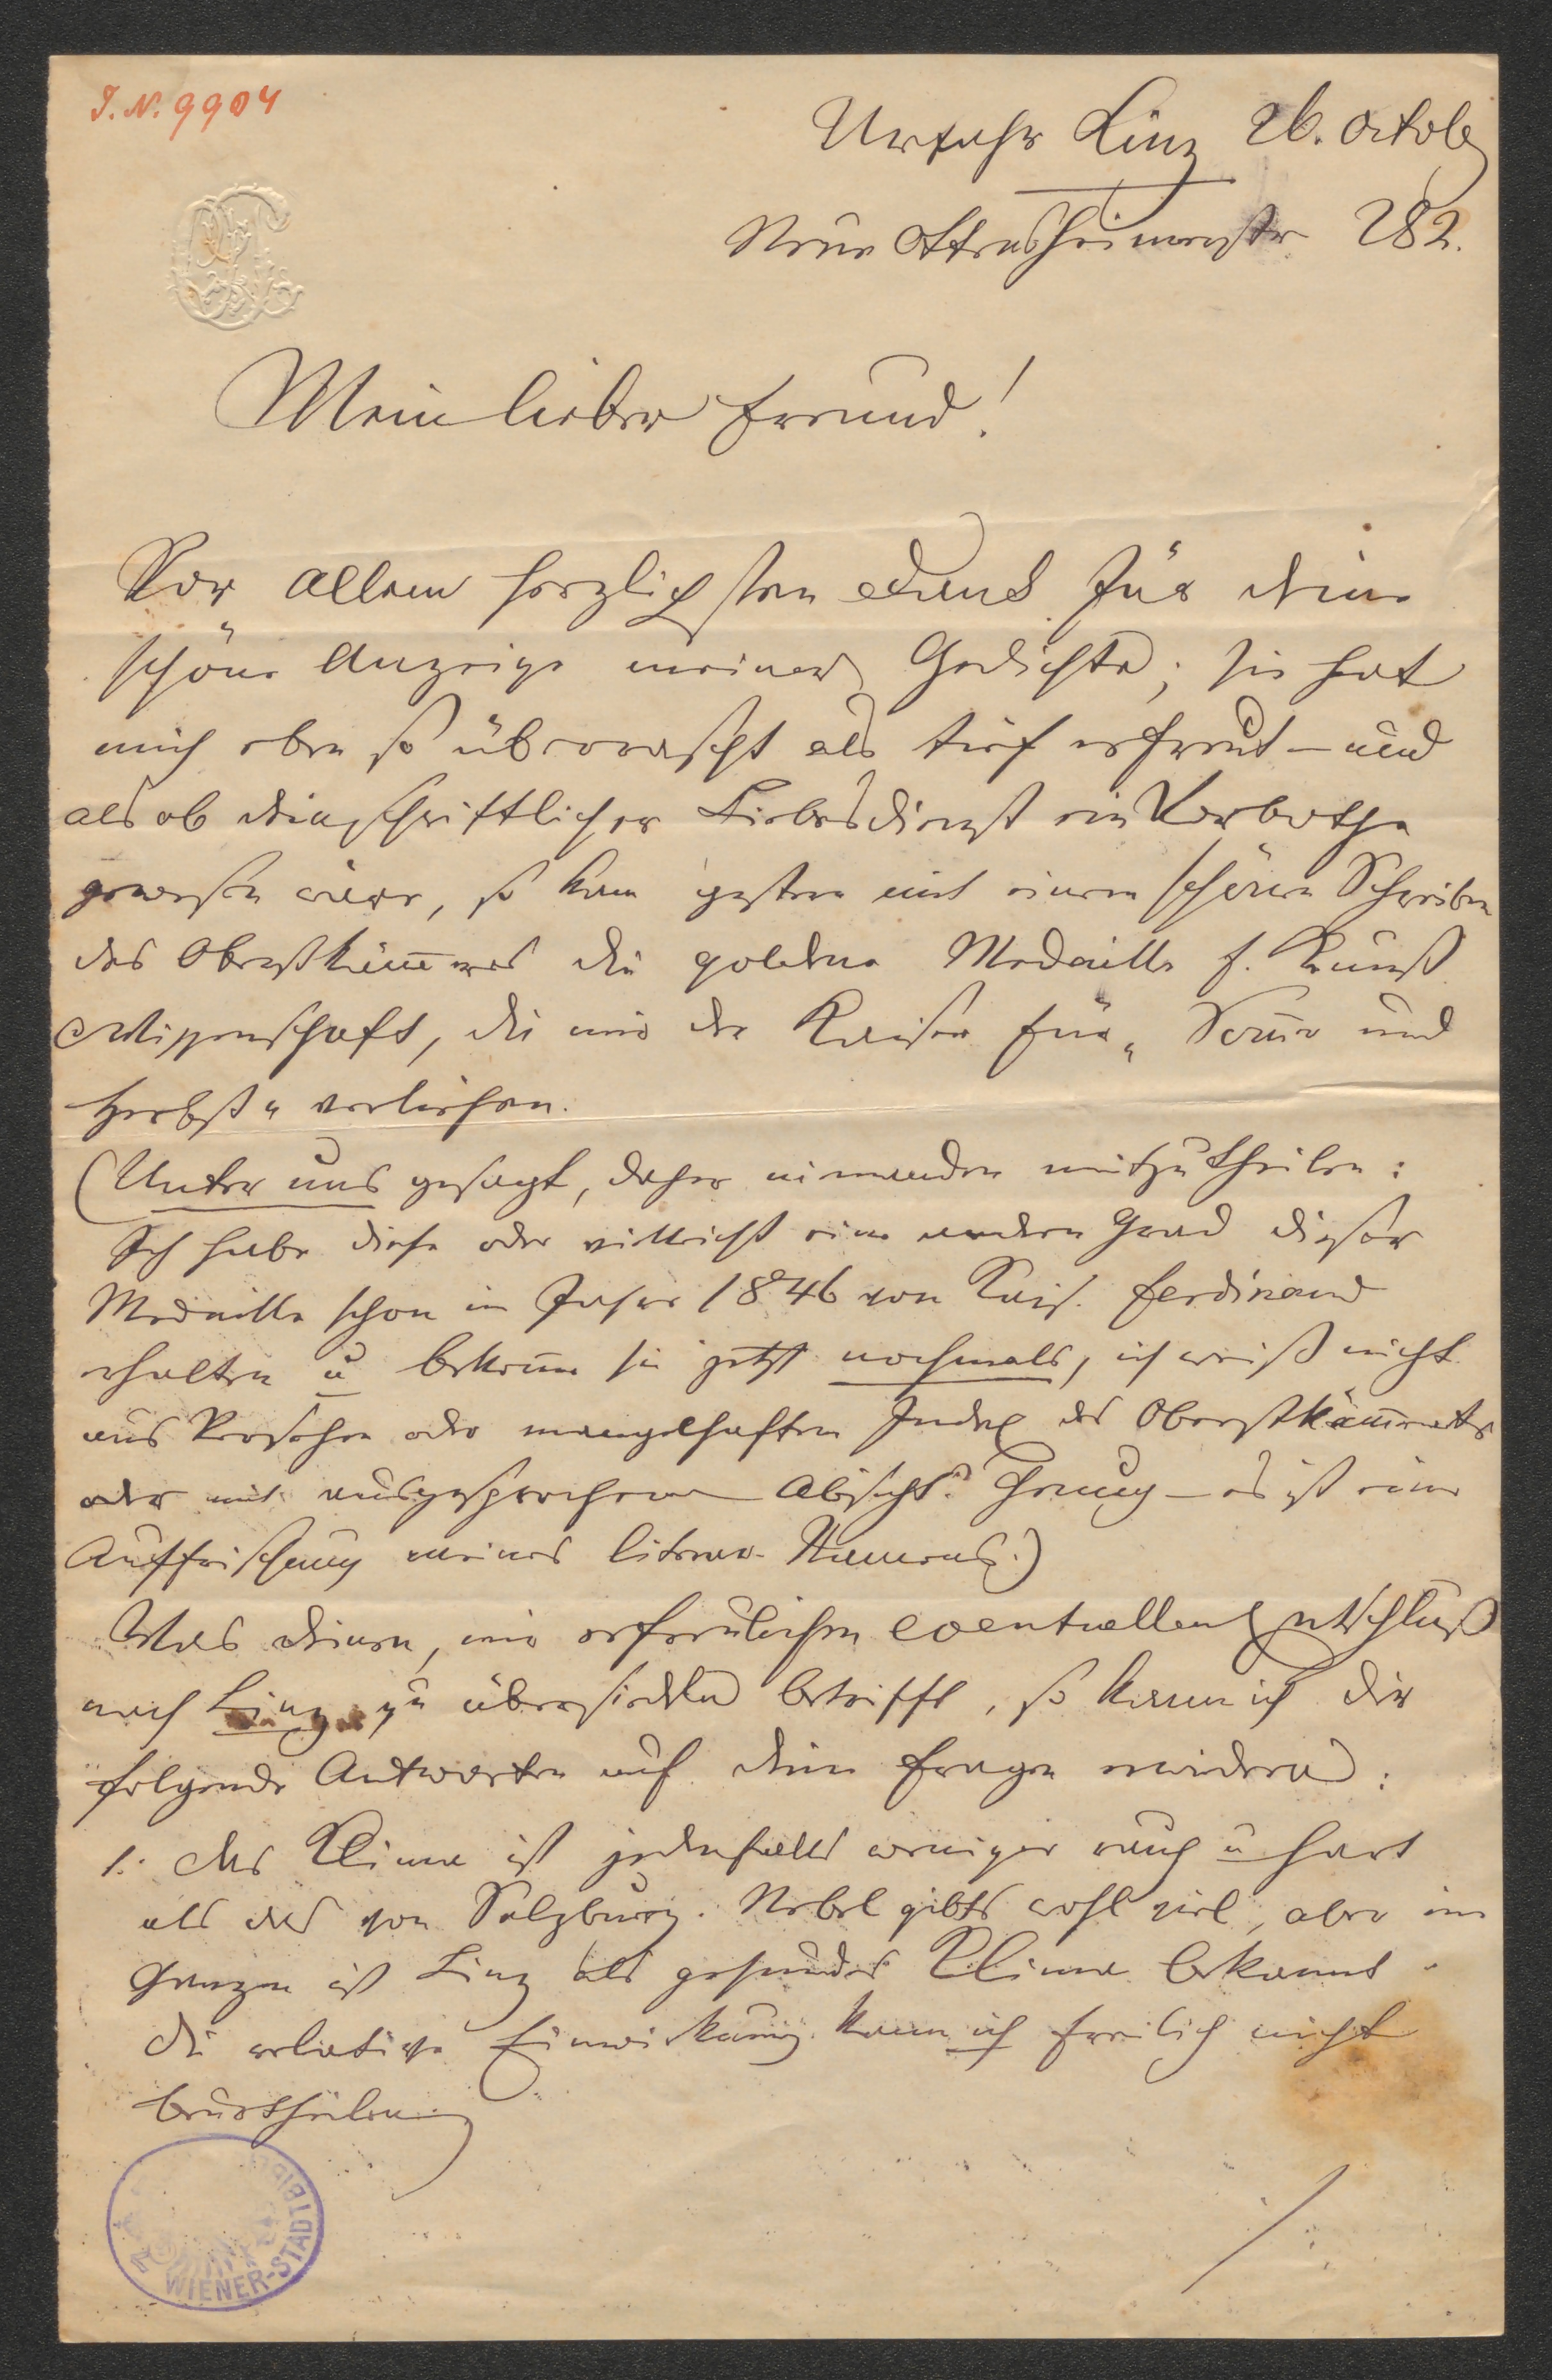 I.N. 9904
Urfahr Linz 26. October
Neue Ottensheimerstr 282.
Mein lieber Freund!
Vor allem herzlichsten Dank für deine
schöne Anzeige meiner Gedichte; sie hat
mich eben so überrascht als tief erfreut – und
als ob dein schriftlicher Liebesdienst ein Vorbothe
gewesen wäre, so kam gestern mit einem schönen Schreiben
des Oberstkäm̅erers die goldene Medaille f. Kunst
Wissenschaft, die mir der Kaiser für „Som̅er und
Herbst" verliehen.
(Unter uns gesagt, daher niemanden mitzutheilen:
Ich habe diese oder vielleicht eine andern Grad dieser
Medaille schon im Jahre 1846 von Kais. Ferdinand
erhalten u bekom̅e sie jetzt nochmals, ich weiß nicht
aus Versehen oder mangelhaften Index des Oberstkäm̅erats
oder mit ausgesprochener Absicht? Genug – es ist eine
Auffrischung meines literar. Namens.)
Was deinen, mir erfreulichen eventuellen Entschluß
nach Linz zu übersiedeln betrifft, so kann ich dir
folgende Antworten auf deine Fragen erwidern:
1. Das Klima ist jedenfalls weniger rauh u hart
als das von Salzburg. Nebel gibts wohl viel, aber im
Ganzen ist Linz als gesundes Klima bekannt.
Die relative Einwirkung kann ich freilich nicht
beurtheilen
WIENER-STADTBIBL
/.